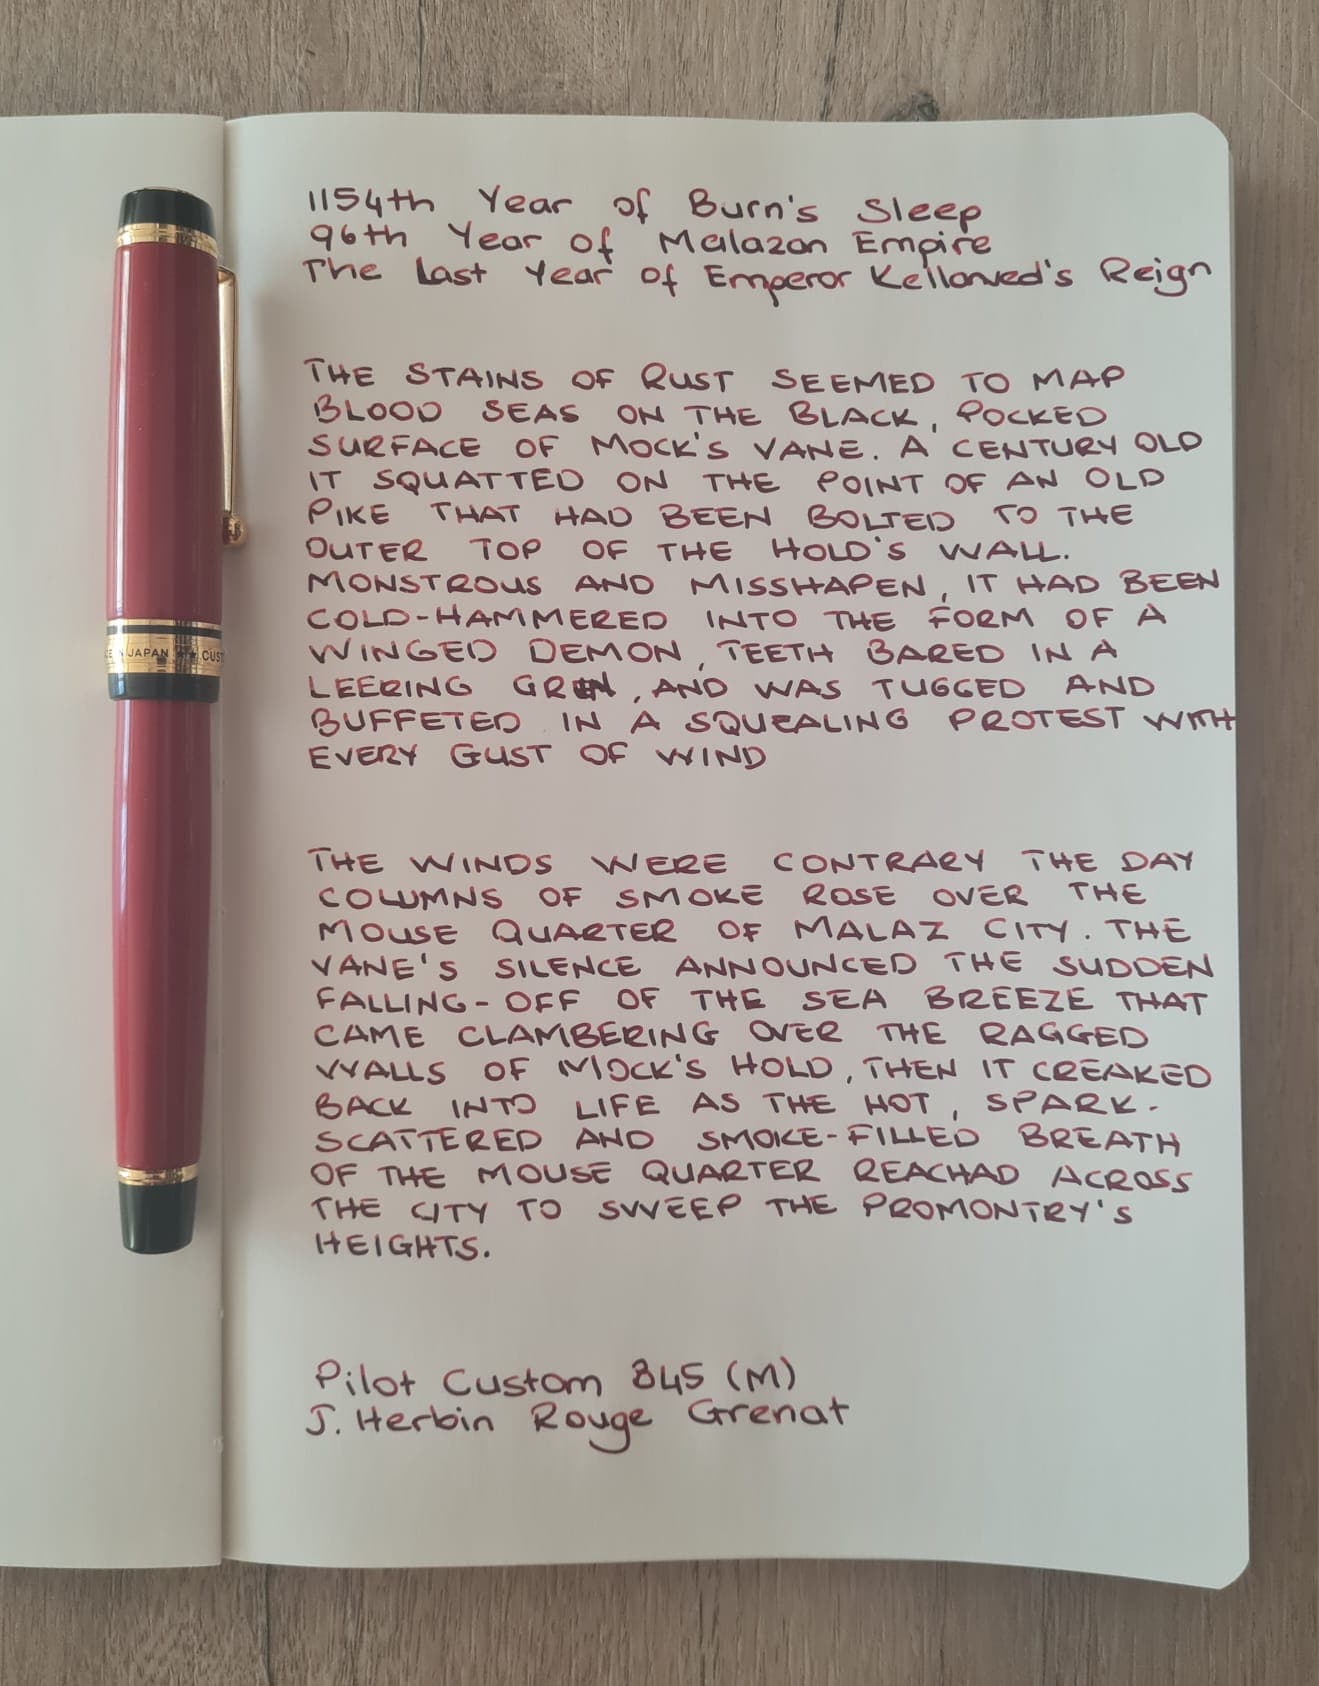 1154th Year of Burn's Sleep
96th Year of Malazan Empire
The Last Year of Emperor Kellanved's Reign
THE STAINS OF RUST SEEMED TO MAP
BLOOD SEAS ON THE BLACK, POCKED
SURFACE OF MOCK'S VANE. A CENTURY OLD
IT SQUATTED ON THE POINT OF AN OLD
PIKE THAT HAD BEEN BOLTED TO THE
OUTER TOP OF THE HOLD'S WALL.
MONSTROUS AND MISSHAPEN, IT HAD BEEN
COLD-HAMMERED INTO THE FORM OF A
WINGED DEMON, TEETH BARED IN A
LEERING GRIN, AND WAS TUGGED AND
BUFFETED IN A SQUEALING PROTEST WITH
EVERY GUST OF WIND
THE WINDS WERE CONTRARY THE DAY
COLUMNS OF SMOKE ROSE OVER THE
MOUSE QUARTER OF MALAZ CITY. THE
VANE'S SILENCE ANNOUNCED THE SUDDEN
FALLING-OFF OF THE SEA BREEZE THAT
CAME CLAMBERING OVER THE RAGGED
WALLS OF MOCK'S HOLD, THEN IT CREAKED
BACK INTO LIFE AS THE HOT, SPARK-
SCATTERED AND SMOKE-FILLED BREATH
OF THE MOUSE QUARTER REACHAD ACROSS
THE CITY TO SWEEP THE PROMONTRY'S
HEIGHTS.
Pilot Custom 845 (M)
J. Herbin Rouge Grenat
N JAPAN ★★ CUST